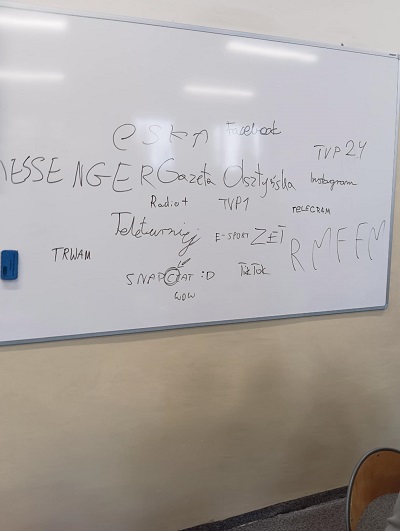 eska Facebook
TVP 24
MESSENGER Gazeta Olsztyńska Instagram
Radio+ TVP1 TELEGRAM
Teleturniej E-SPORT ZET RMF FM
TRWAM
SNAPCZAT :D TikTok
WOW